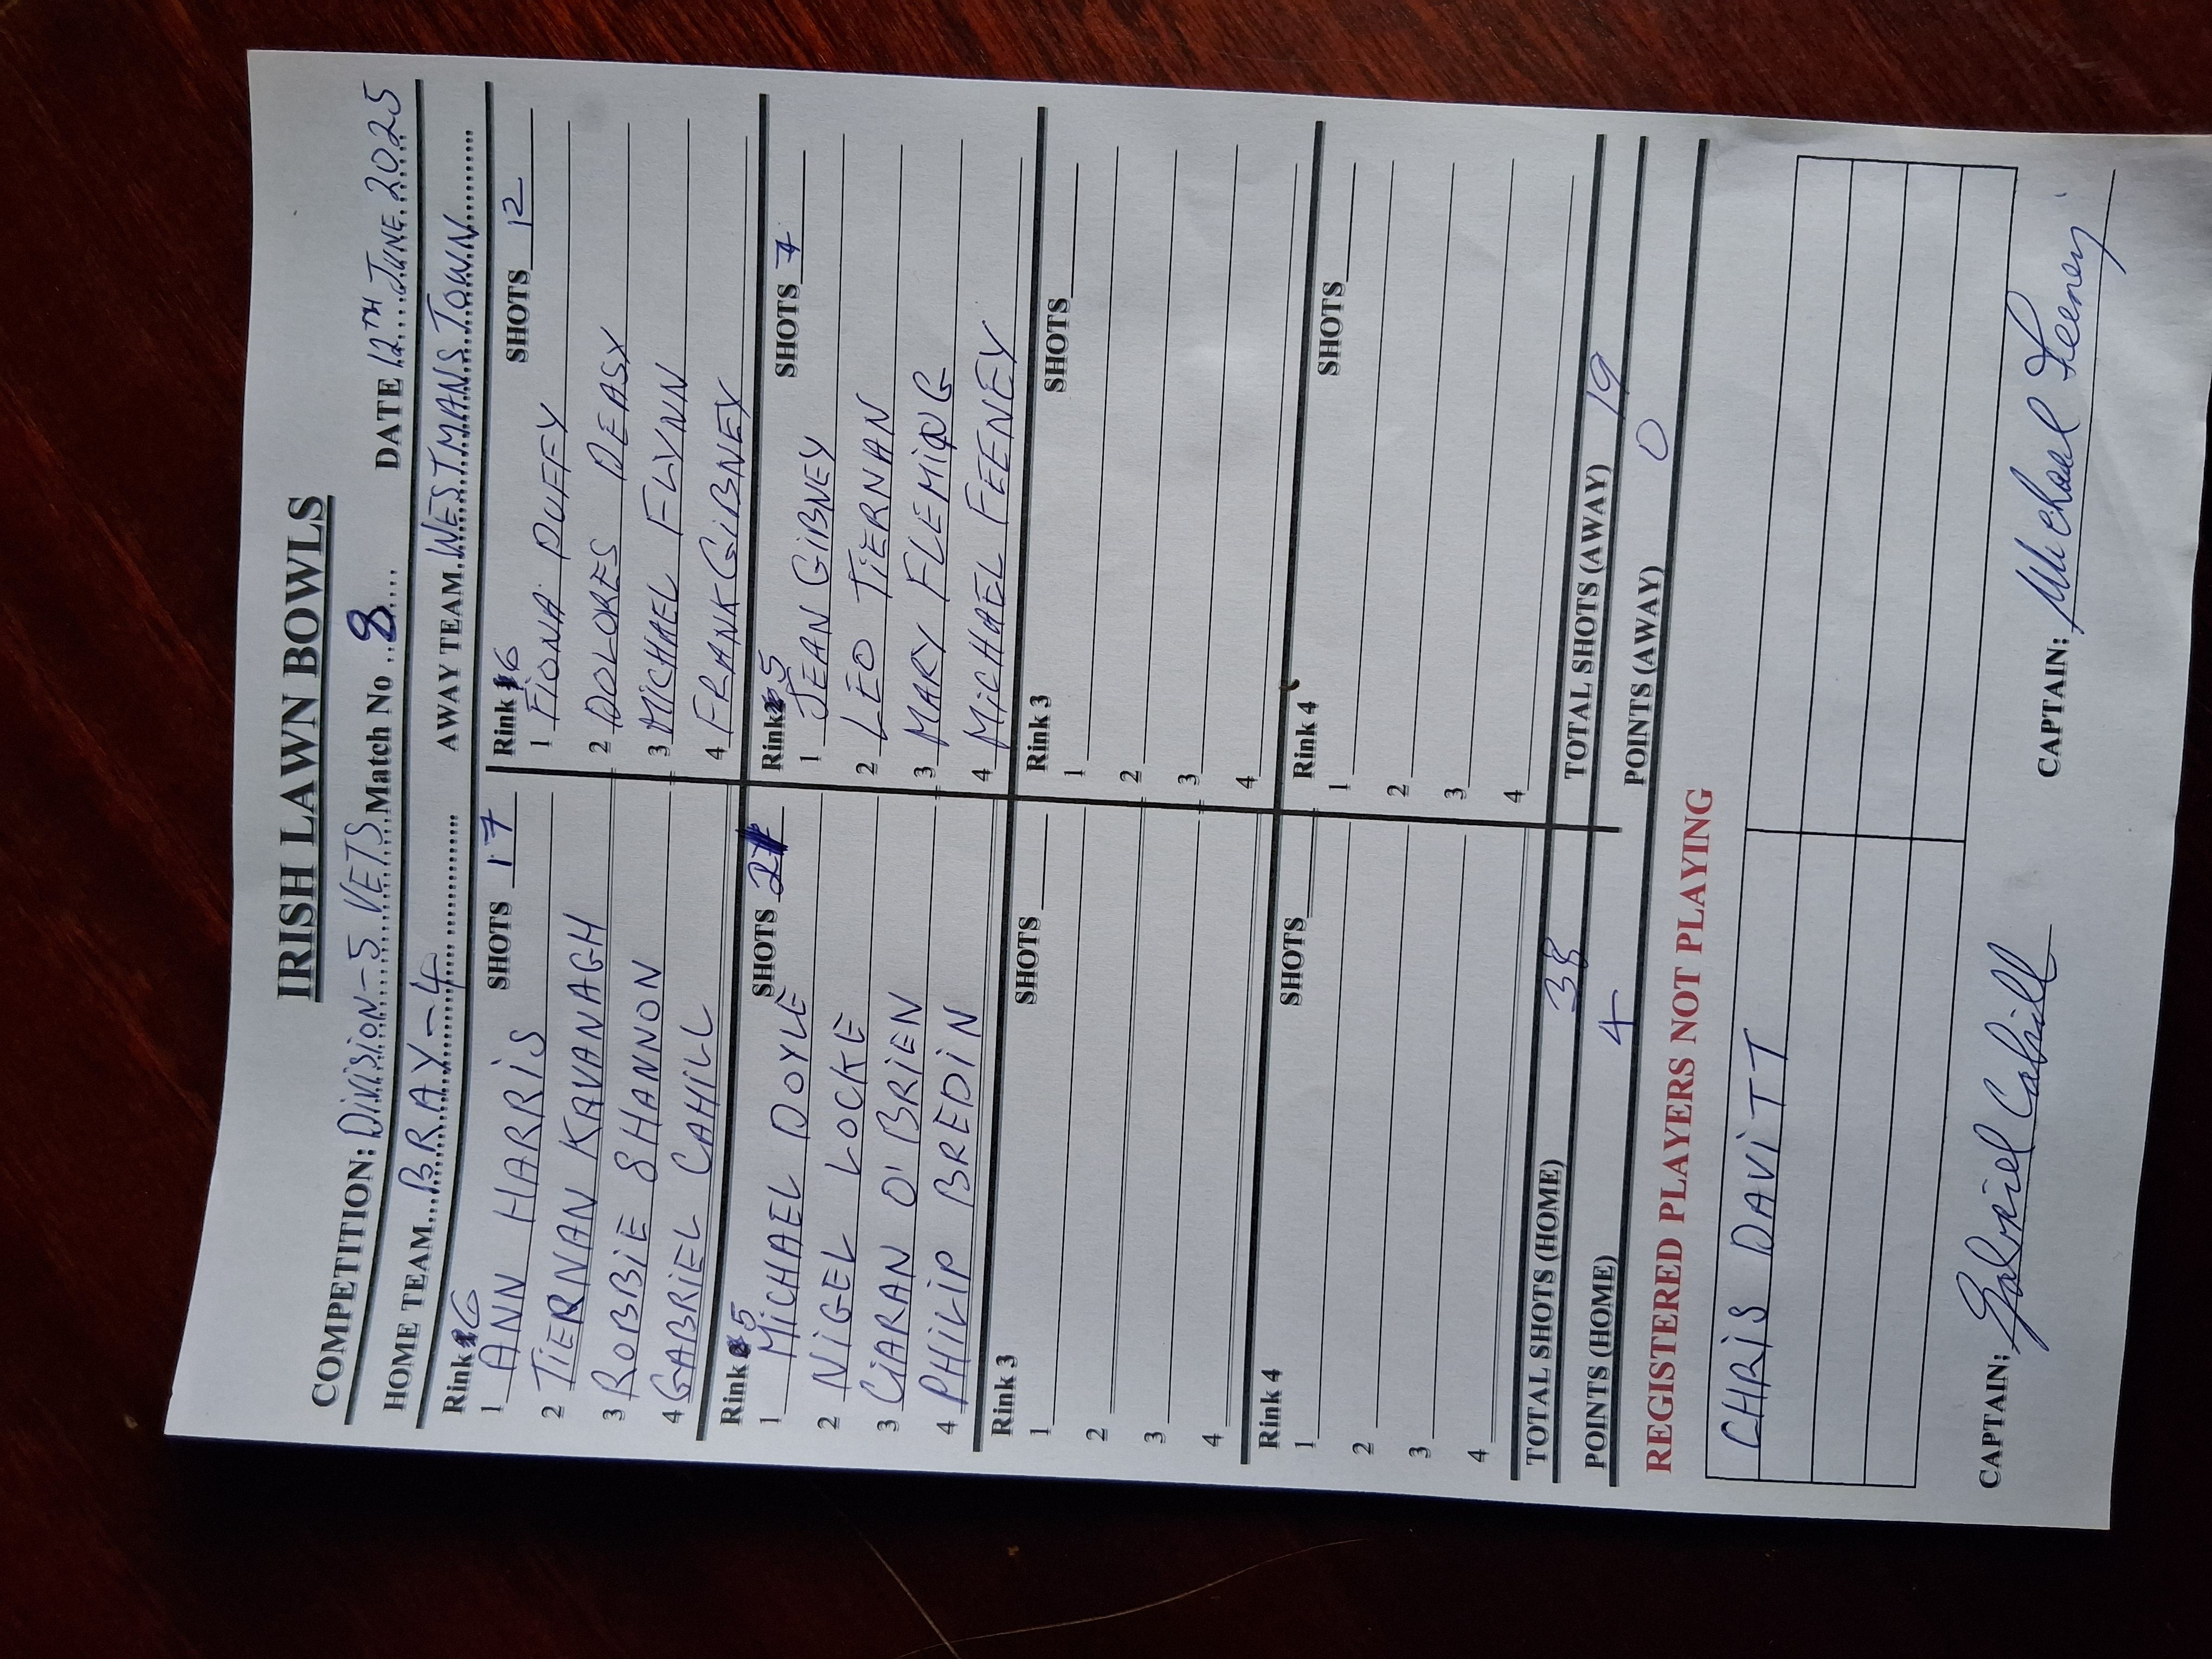 IRISH LAWN BOWLS
COMPETITION: Division-5 VETS Match No 8 DATE 12TH JUNE 2025
HOME TEAM BRAY-4 AWAY TEAM WESTMANSTOWN
Rink 6 SHOTS 17
1 ANN HARRIS
2 TIERNAN KAVANAGH
3 ROBBIE SHANNON
4 GABRIEL CAHILL
Rink 6 SHOTS 12
1 FIONA DUFFY
2 DOLORES DEASY
3 MICHAEL FLYNN
4 FRANK GIBNEY
Rink 5 SHOTS 21
1 MICHAEL DOYLE
2 NIGEL LOCKE
3 CIARAN O'BRIEN
4 PHILIP BREDIN
Rink 5 SHOTS 7
1 JEAN GIBNEY
2 LEO TIERNAN
3 MARY FLEMING
4 MICHAEL FEENEY
Rink 3 SHOTS
1
2
3
4
Rink 3 SHOTS
1
2
3
4
Rink 4 SHOTS
1
2
3
4
Rink 4 SHOTS
1
2
3
4
TOTAL SHOTS (HOME) 38 TOTAL SHOTS (AWAY) 19
POINTS (HOME) 4 POINTS (AWAY) 0
REGISTERED PLAYERS NOT PLAYING
CHRIS DAVITT
CAPTAIN: Gabriel Cahill CAPTAIN: Michael Feeney